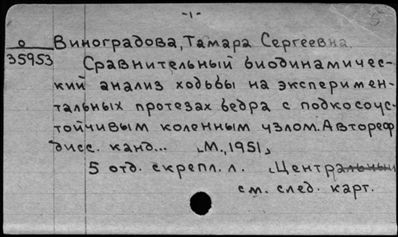 -1-
О Виноградова, Тамара Сергеевна
35953 Сравнительный биодинамичес-
кий анализ ходьбы на эксперимен-
тальных протезах бедра с подкосоус-
тойчивым коленным узлом. Автореф
дисс. канд... [М., 1951]
5 отд. скрепл. л. [Центральный
см. след. карт.